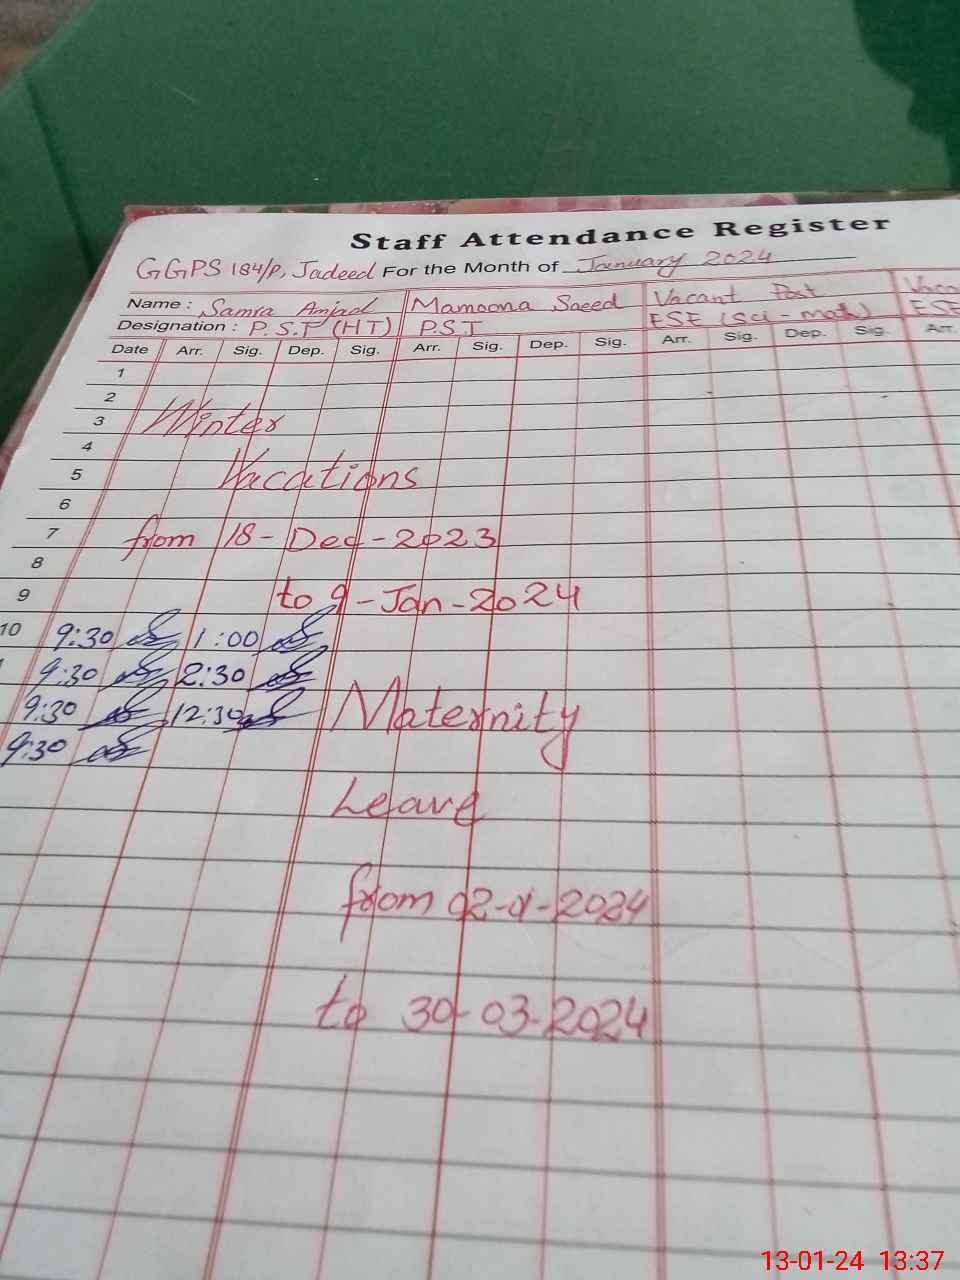 Staff Attendance Register
GGPS 184/P, Jadeed For the Month of January 2024
Name : Samra Amjad Mamoona Saeed Vacant Post Vaca
Designation : P.S.T (HT) P.S.T ESE (Sci - math) ESE
Date Arr. Sig. Dep. Sig. Arr. Sig. Dep. Sig. Arr. Sig. Dep. Sig. Arr.
1
2
3 Winter
4
5 Vacations
6
7 from 18 - Dec - 2023
8
9 to 9 - Jan - 2024
10 9:30 1:00
9:30 2:30
9:30 12:30 Maternity
9:30
Leave
from 02-01-2024
to 30-03-2024
13-01-24 13:37